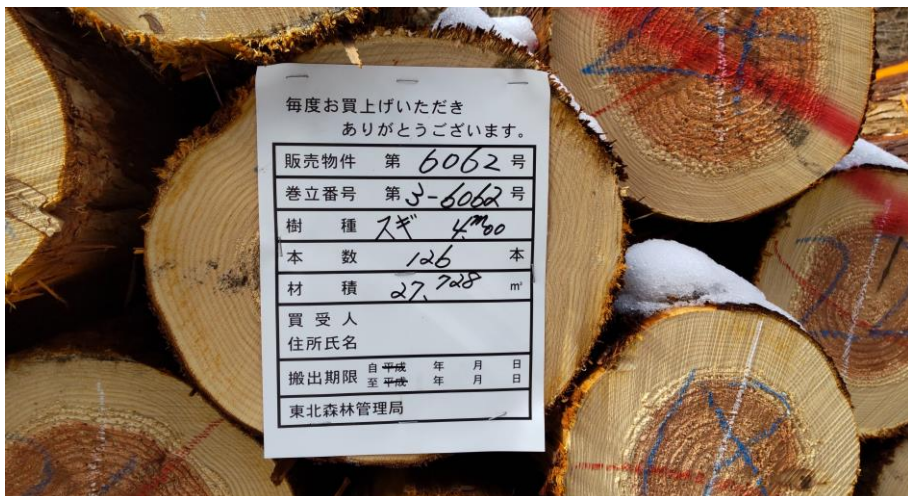 毎度お買上げいただき
ありがとうございます。
販売物件 第 6062 号
巻立番号 第 3-6062 号
樹種 スギ 4.m00
本数 126 本
材積 27.728 m³
買受人
住所氏名
搬出期限 自 平成 年 月 日
至 平成 年 月 日
東北森林管理局